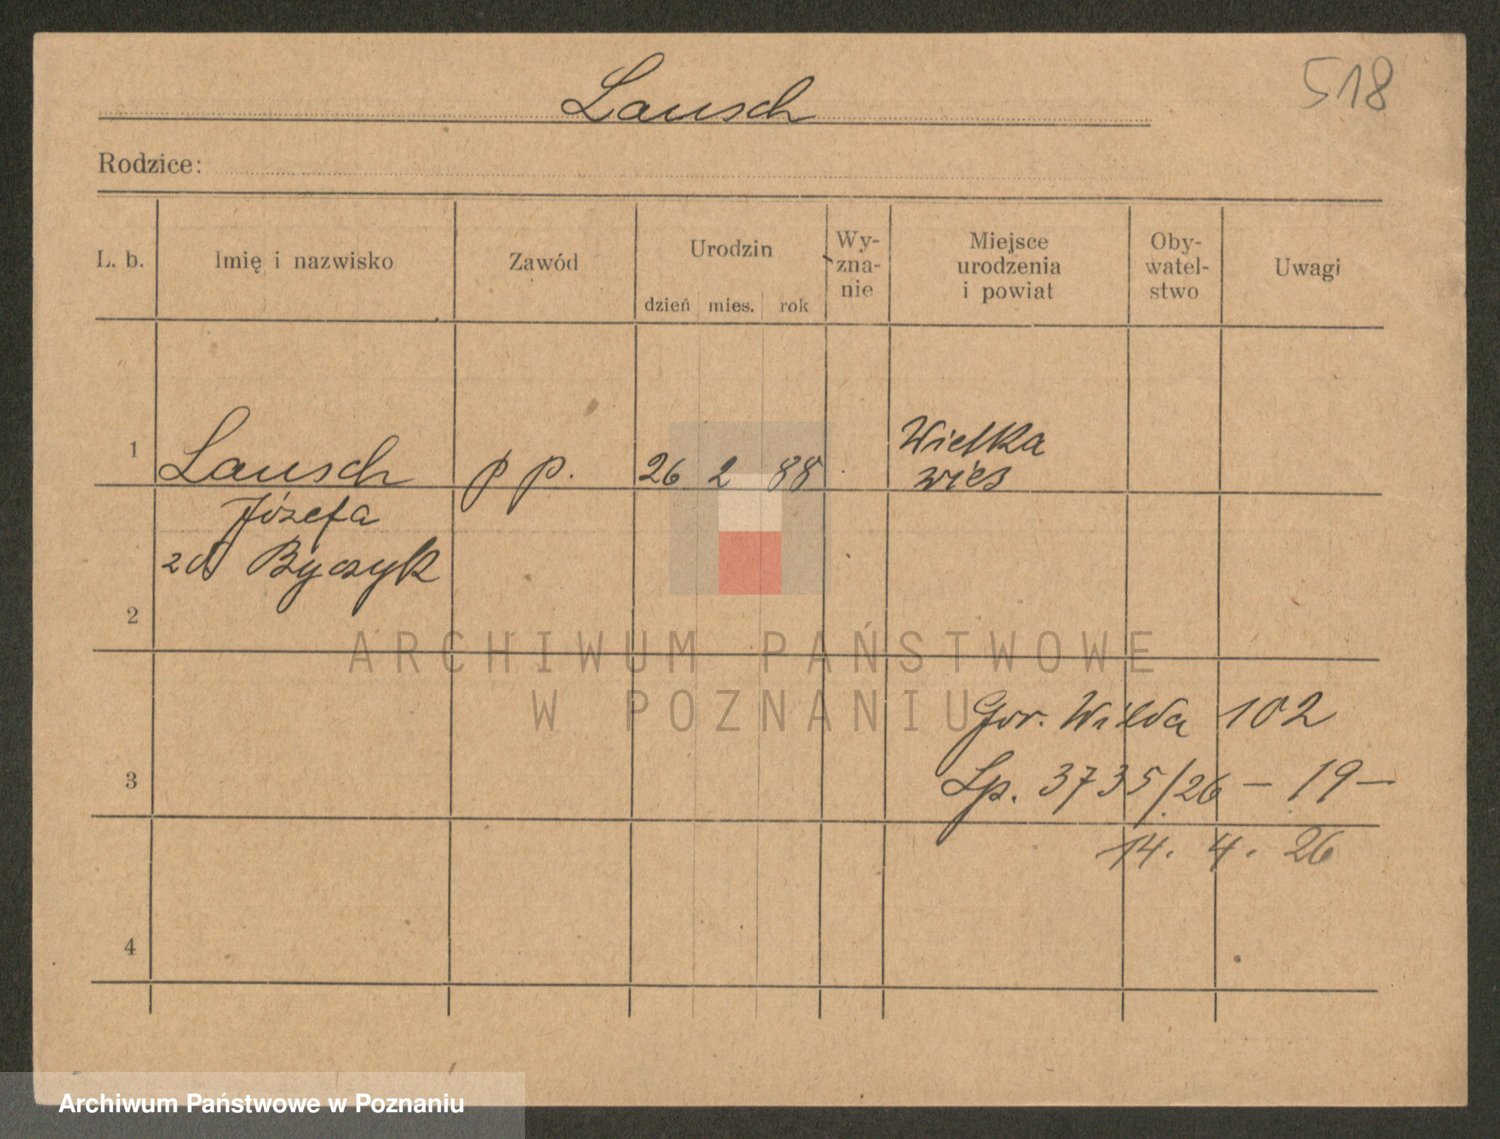 518
Lausch
Rodzice:
L. b.
Imię i nazwisko
Zawód
Urodzin
dzień mies. rok
Wy-
zna-
nie
Miejsce
urodzenia
i powiat
Oby-
watel-
stwo
Uwagi
1
Lausch
p p.
26 2 88
Wielka
wieś
Józefa
zd Byczyk
2
ARCHIWUM PAŃSTWOWE
W POZNANIU
Gór. Wilda 102
3
Lp. 3735/26 – 19 –
14. 4. 26
4
Archiwum Państwowe w Poznaniu